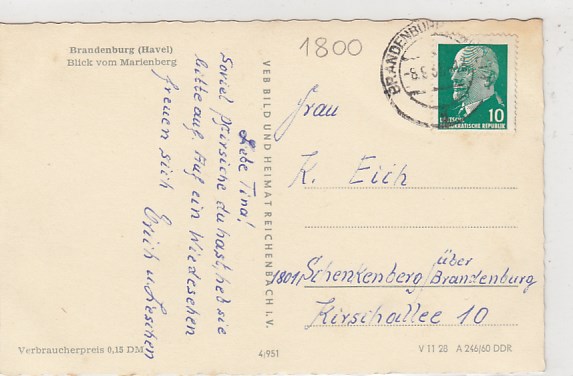 Brandenburg (Havel)
Blick vom Marienberg
Liebe Tina!
Soviel Pfirsiche du hast, heb sie
bitte auf. Auf ein Wiedesehen
freuen sich Erich u.
VEB BILD UND HEIMAT REICHENBACH I. V.
1800
BRANDENBURG
10
DEUTSCHE
DEMOKRATISCHE REPUBLIK
Frau
K. Eich
1801 Schenkenberg / über Brandenburg
Kirschallee 10
Verbraucherpreis 0,15 DM
4/951
V 11 28 A 246/60 DDR